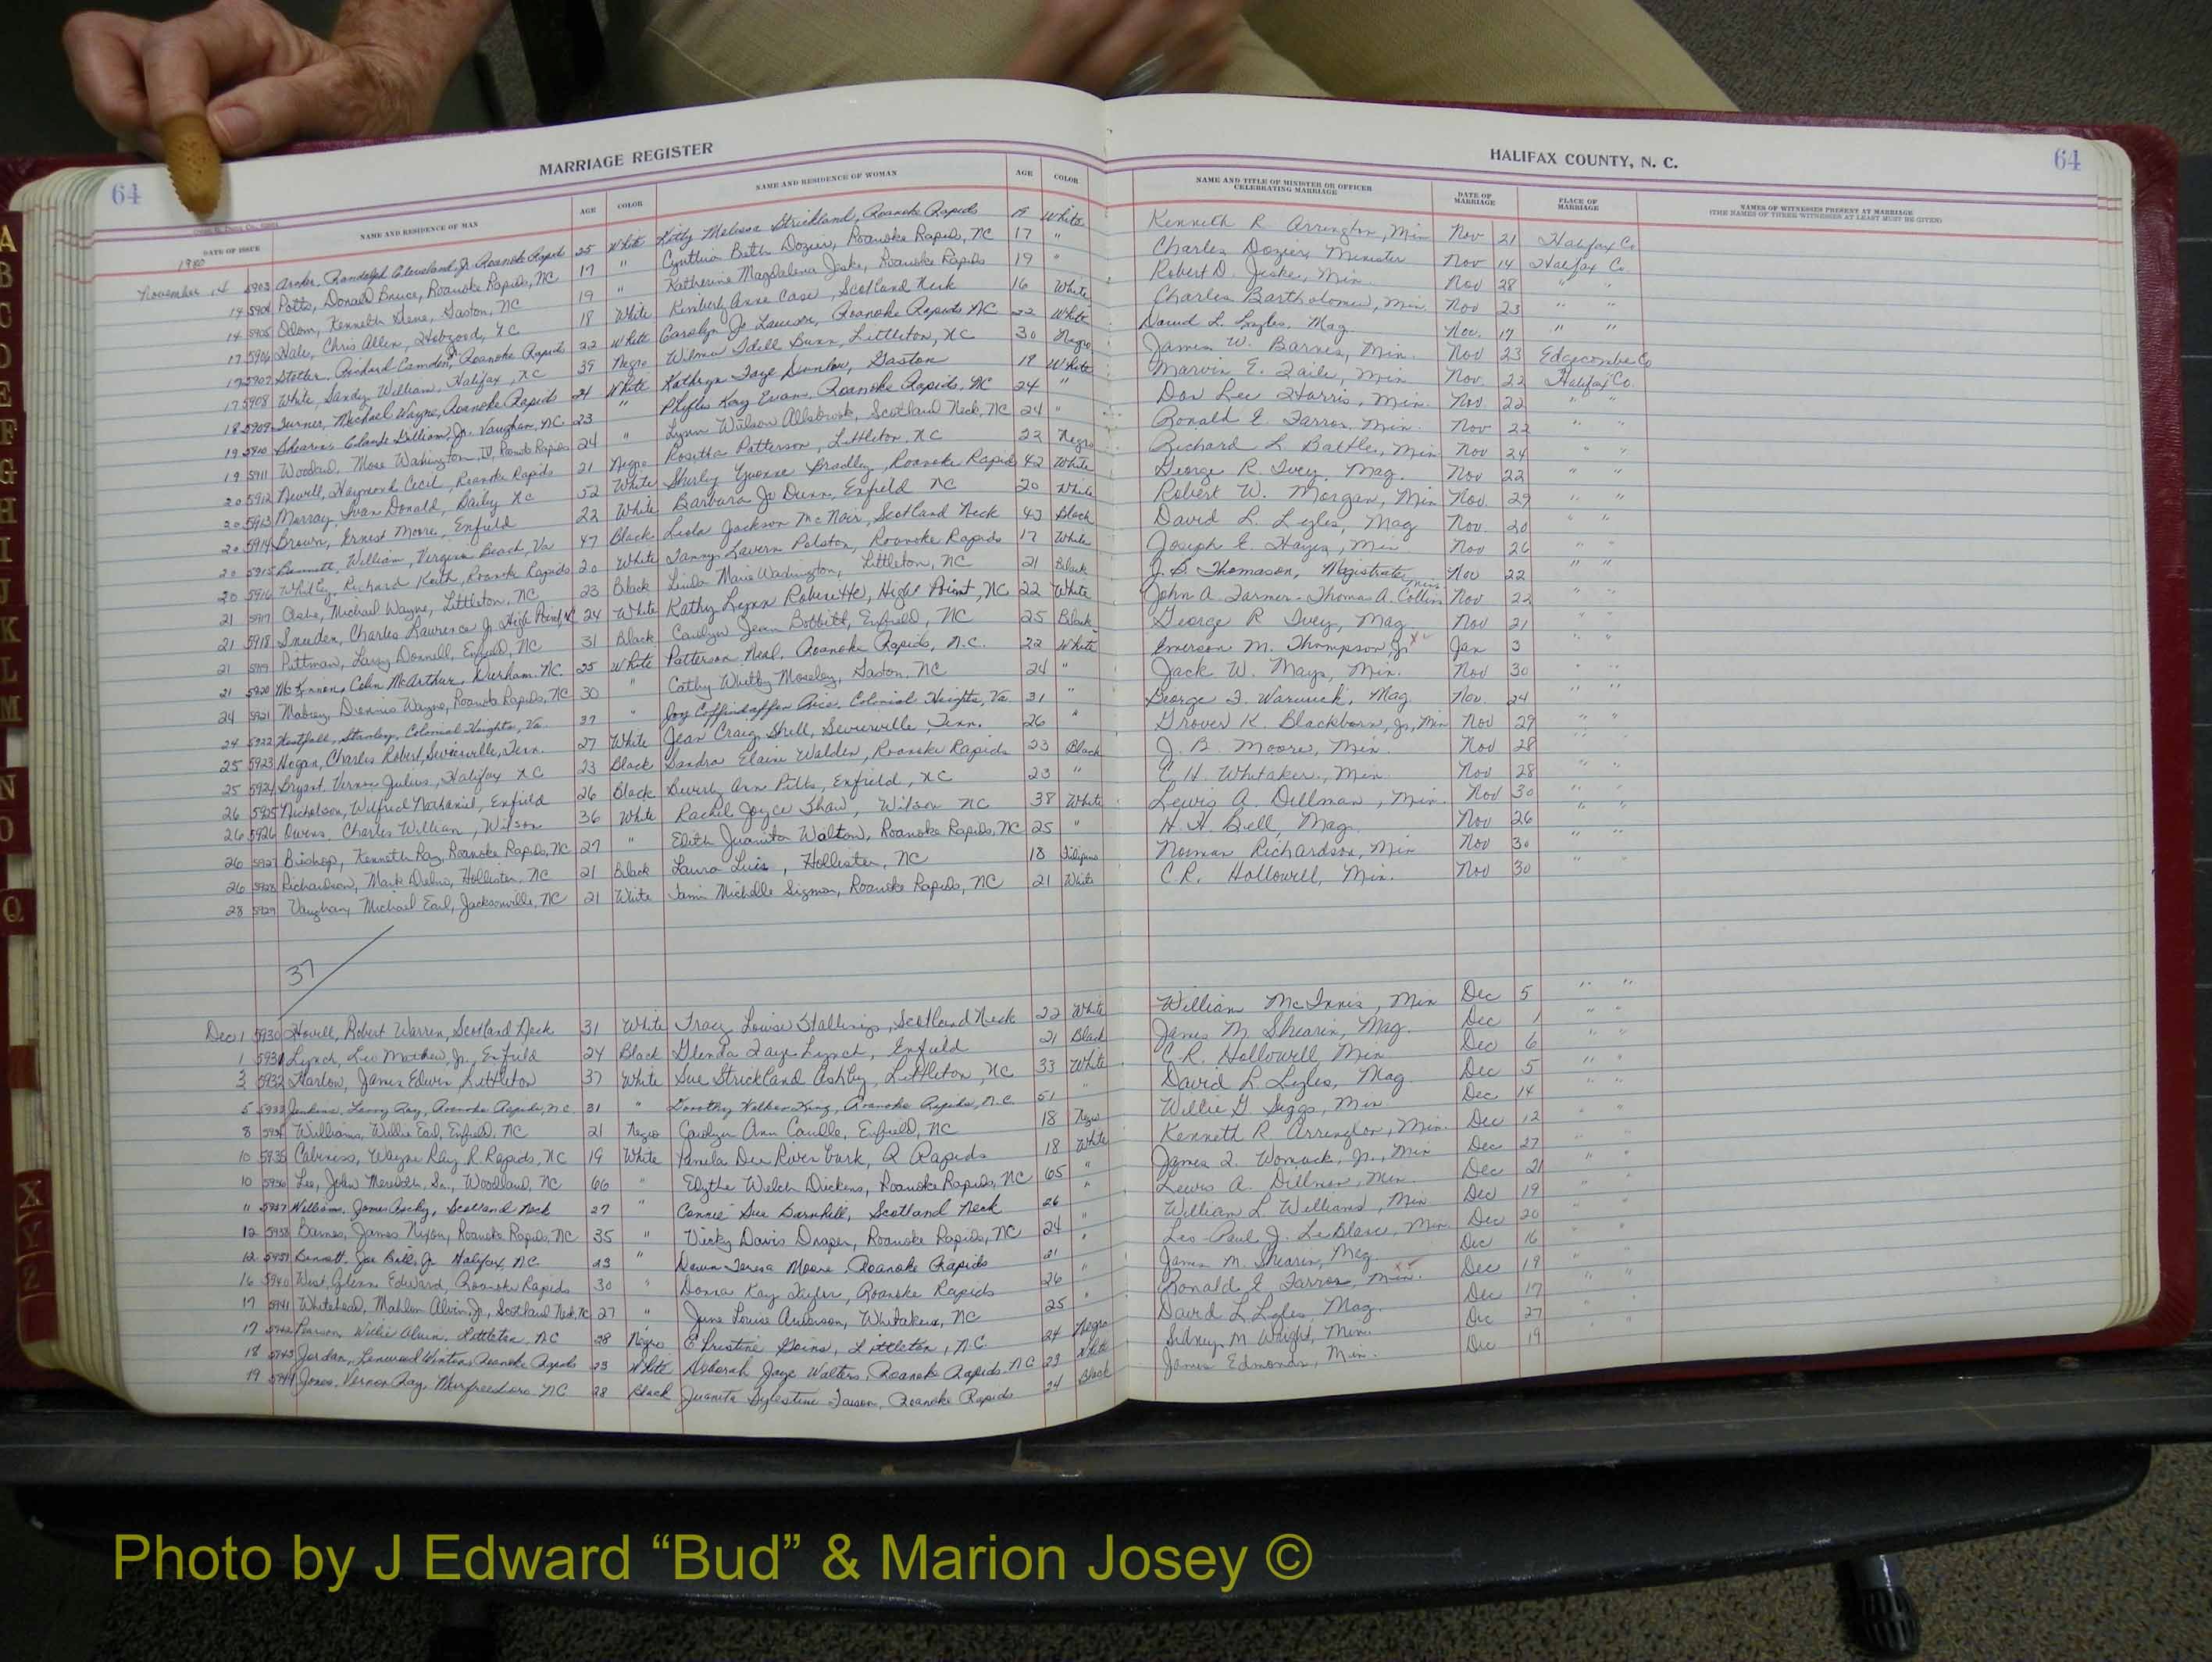 64 MARRIAGE REGISTER HALIFAX COUNTY, N. C. 64
DATE OF ISSUE NAME AND RESIDENCE OF MAN AGE COLOR NAME AND RESIDENCE OF WOMAN AGE COLOR NAME AND TITLE OF MINISTER OR OFFICER CELEBRATING MARRIAGE DATE OF MARRIAGE PLACE OF MARRIAGE NAMES OF WITNESSES PRESENT AT MARRIAGE (THE NAMES OF THREE WITNESSES AT LEAST MUST BE GIVEN)
1980
November 14 5903 Randolph Cleveland, Jr. Roanoke Rapids 25 White Kitty Melissa Strickland, Roanoke Rapids 19 White Kenneth R Arrington, Min Nov 21 Halifax Co
14 5904 Potts, Donald Bruce, Roanoke Rapids, NC 17 " Cynthia Beth Dozier, Roanoke Rapids, NC 17 " Charles Dozier, Minister Nov 14 Halifax Co
14 5905 Odom, Kenneth Gene, Gaston, NC 19 " Katherine Magdalena Jeske, Roanoke Rapids 19 " Robert D. Jeske, Min. Nov 28 " "
17 5906 Hale, Chris Allen, Hobgood, NC 18 White Kimberly Anne Case, Scotland Neck 16 White Charles Bartholomew, Min Nov 23 " "
17 5907 Stotler, Richard Camden, Roanoke Rapids 22 White Carolyn Jo Roanoke Rapids NC 22 White David L. Lyles, Mag Nov. 17 " "
17 5908 White, Sandy William, Halifax, NC 39 Negro Wilma Idell Dunn, Littleton, NC 30 Negro James W. Barnes, Min. Nov 23 Edgecombe Co
18 5909 Turner, Michael Wayne, Roanoke Rapids 21 White Kathryn Faye Dunlow, Gaston 19 White Marvin E. Min Nov. 22 Halifax Co.
19 5910 Shearin, Claude William, Jr. Vaughan, NC 23 " Phyllis Kay Evans, Roanoke Rapids, NC 24 " Dan Lee Harris, Min. Nov. 22 " "
19 5911 Woodard, Mose Washington, IV, Roanoke Rapids 24 " Lynn Watson Allsbrook, Scotland Neck, NC 24 " Ronald E. Farror, Min. Nov 22 " "
20 5912 Newell, Haymond Cecil, Roanoke Rapids 21 Negro Rosetta Patterson, Littleton, NC 23 Negro Richard L Battle, Min Nov 24 " "
20 5913 Murray, Ivan Donald, Bailey NC 52 White Shirley Yvonne Bradley, Roanoke Rapids 42 White George R. Ivey, Mag. Nov 22 " "
20 5914 Brown, Ernest Moore, Enfield 22 White Barbara Jo Dunn, Enfield NC 20 White Robert W. Morgan, Min Nov. 29 " "
20 5915 Bennett, William, Virginia Beach, Va 47 Black Leola Jackson McNair, Scotland Neck 43 Black David L. Lyles, Mag Nov. 20 " "
20 5916 Whitley, Richard Keith, Roanoke Rapids 20 White Tammy Lavern Polston, Roanoke Rapids 17 White Joseph E. Hayes, Min Nov 26 " "
21 5917 Michael Wayne, Littleton, NC 23 Black Linda Marie Washington, Littleton, NC 21 Black J. B. Thomason, Magistrate Nov 22 " "
21 5918 Sneeden, Charles Lawrence Jr High Point, NC 24 White Kathy Lynn Robinette, High Point, NC 22 White John A. Farmer - Thomas A. Collins Mins Nov 22 " "
21 5919 Pittman, Larry Donnell, Enfield, NC 31 Black Carolyn Jean Bobbitt, Enfield, NC 25 Black George R Ivey, Mag Nov 21 " "
21 5920 McKinnon, Colin McArthur, Durham, NC. 25 White Patterson Neal, Roanoke Rapids, N.C. 22 White Emerson M. Thompson, Jr Jan 3 " "
24 5921 Mabrey, Dennis Wayne, Roanoke Rapids, NC 30 " Cathy Whitby Moseley, Gaston, NC 24 " Jack W. Mays, Min. Nov 30 " "
24 5922 Westfall, Stanley, Colonial Heights, Va. 37 " Joy Coffindaffer Rice, Colonial Heights, Va. 31 " George F. Warwick, Mag Nov. 24 " "
25 5923 Hogan, Charles Robert, Sevierville, Tenn. 27 White Jean Craig Shell, Sevierville, Tenn. 26 " Grover K. Blackburn, Jr, Min Nov 29 " "
25 5924 Bryant, Vernon Julius, Halifax NC 23 Black Sandra Elaine Walden, Roanoke Rapids 23 Black J. B. Moore, Min. Nov 28 " "
26 5925 Nicholson, Wilfred Nathaniel, Enfield 26 Black Beverly Ann Pitts, Enfield, NC 23 " C. H. Whitaker, Min. Nov 28 " "
26 5926 Owens, Charles William, Wilson 36 White Rachel Joyce Shaw, Wilson NC 38 White Lewis A. Dillman, Min. Nov 30 " "
26 5927 Bishop, Kenneth Ray, Roanoke Rapids, NC 27 " Edith Juanita Walton, Roanoke Rapids, NC 25 " H. H. Bell, Mag. Nov 26 " "
26 5928 Richardson, Mark Hollister, NC 21 Black Laura Luis, Hollister, NC 18 Filipino Norman Richardson, Min Nov 30 " "
28 5929 Vaughan, Michael Earl, Jacksonville, NC 21 White Tami Michelle Sizmon, Roanoke Rapids, NC 21 White C.R. Hollowell, Min. Nov 30
37
Dec 1 5930 Howell, Robert Warren, Scotland Neck 31 White Tracy Louise Stallings, Scotland Neck 22 White William McInnis, Min Dec 5 " "
1 5931 Lynch, Leo Mathew, Jr., Enfield 24 Black Glenda Faye Lynch, Enfield 21 Black James M. Shearin, Mag. Dec 1 " "
3 5932 Harlow, James Edwin, Littleton 37 White Sue Strickland Ashby, Littleton, NC 33 White C.R. Hollowell, Min Dec 6 " "
5 5933 Jenkins, Larry Ray, Roanoke Rapids, N.C. 31 " Dorothy Walker King, Roanoke Rapids, N.C. 51 " David L. Lyles, Mag Dec 5 " "
8 5934 Williams, Willie Earl, Enfield, NC 21 Negro Carolyn Ann Caudle, Enfield, NC 18 Negro Willie G Suggs, Min Dec 14 " "
10 5935 Cabiness, Wayne Ray R. Rapids, NC 19 White Pamela Dee Rivenbark, R Rapids 18 White Kenneth R Arrington, Min. Dec 12 " "
10 5936 Lee, John Meredith, Sr., Woodland, NC 66 " Edythe Welch Dickens, Roanoke Rapids, NC 65 " James L. Womack, Jr., Min Dec 27 " "
11 5937 Williams, James Rocky, Scotland Neck 27 " Connie Sue Barnhill, Scotland Neck 26 " Lewis A. Dillman, Min. Dec 21 " "
12 5938 Barnes, James Nixon, Roanoke Rapids, NC 35 " Vicky Davis Draper, Roanoke Rapids, NC 24 " William L Williams, Min Dec 19 " "
12 5939 Bennett, Joe Bill, Jr Halifax, NC. 23 " Dawn Teresa Moore, Roanoke Rapids 21 " Leo Paul J. LeBlanc, Min. Dec 20 " "
16 5940 West, Glenn Edward, Roanoke Rapids 30 " Donna Kay Taylor, Roanoke Rapids 26 " James M. Shearin, Mag. Dec 16 " "
17 5941 Whitehead, Mahlon Alvin, Jr, Scotland Neck, NC 27 " June Louise Anderson, Whitakers, NC 25 " Ronald E Farror, Min. Dec 19 " "
17 5942 Pearson, Willie Alvin, Littleton, NC 28 Negro Ernestine Goins, Littleton, N.C. 24 Negro David L Lyles, Mag. Dec 17 " "
18 5943 Jordan, Linwood Winton, Roanoke Rapids 23 White Deborah Jaye Walters, Roanoke Rapids, NC 23 White Sidney M Wright, Min. Dec 27 " "
19 5944 Jones, Vernon Ray, Murfreesboro NC 28 Black Juanita Sylestine Roanoke Rapids 24 Black James Edmonds, Min. Dec 19
A
B
C
D
E
F
G
H
I
J
K
L
M
N
O
Q
X
Y
Z
Photo by J Edward “Bud” & Marion Josey ©